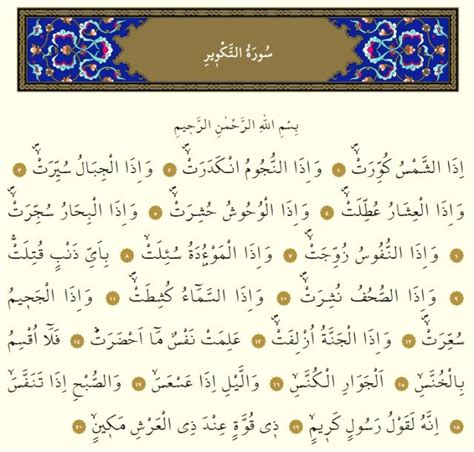 سُورَةُ التَّكْوِيرِ
بِسْمِ اللهِ الرَّحْمٰنِ الرَّحِيمِ
اِذَا الشَّمْسُ كُوِّرَتْۙ ﴿١﴾ وَاِذَا النُّجُومُ انْكَدَرَتْۙ ﴿٢﴾ وَاِذَا الْجِبَالُ سُيِّرَتْۙ ﴿٣﴾
وَاِذَا الْعِشَارُ عُطِّلَتْۙ ﴿٤﴾ وَاِذَا الْوُحُوشُ حُشِرَتْۙ ﴿٥﴾ وَاِذَا الْبِحَارُ سُجِّرَتْۙ
﴿٦﴾ وَاِذَا النُّفُوسُ زُوِّجَتْۙ ﴿٧﴾ وَاِذَا الْمَوْءُ۫دَةُ سُئِلَتْۙ ﴿٨﴾ بِاَيِّ ذَنْبٍ قُتِلَتْۚ
﴿٩﴾ وَاِذَا الصُّحُفُ نُشِرَتْۙ ﴿١٠﴾ وَاِذَا السَّمَٓاءُ كُشِطَتْۙ ﴿١١﴾ وَاِذَا الْجَحِيمُ
سُعِّرَتْۙ ﴿١٢﴾ وَاِذَا الْجَنَّةُ اُزْلِفَتْۙ ﴿١٣﴾ عَلِمَتْ نَفْسٌ مَٓا اَحْضَرَتْۜ ﴿١٤﴾ فَلَٓا اُقْسِمُ
بِالْخُنَّسِۙ ﴿١٥﴾ اَلْجَوَارِ الْكُنَّسِۙ ﴿١٦﴾ وَالَّيْلِ اِذَا عَسْعَسَۙ ﴿١٧﴾ وَالصُّبْحِ اِذَا تَنَفَّسَۙ
﴿١٨﴾ اِنَّهُ لَقَوْلُ رَسُولٍ كَرِيمٍۙ ﴿١٩﴾ ذِي قُوَّةٍ عِنْدَ ذِي الْعَرْشِ مَكِينٍۙ ﴿٢٠﴾